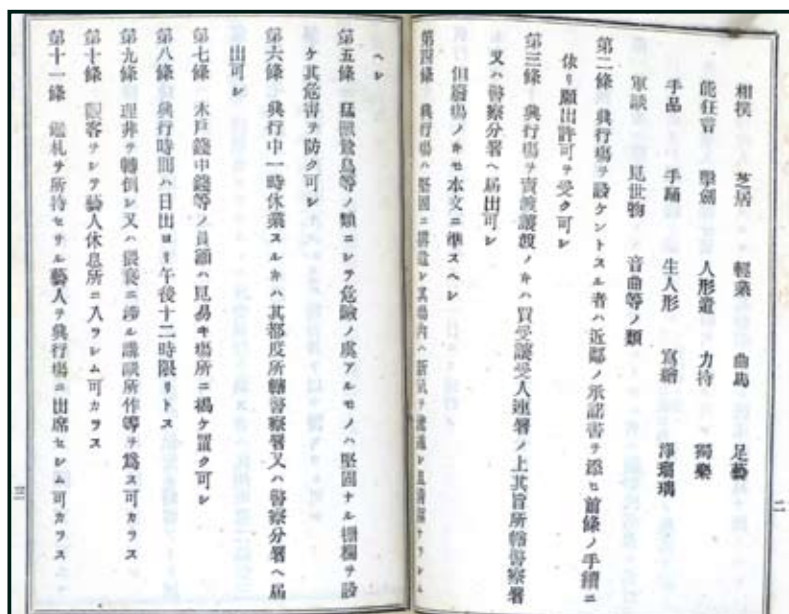 相撲　芝居　輕業　曲馬　足藝
能狂言　擊劍　人形遣　力持　獨樂
手品　手踊　生人形　寫繪　淨瑠璃
軍談　見世物　音曲等ノ類
第二條　興行場ヲ設ケントスル者ハ近鄰ノ承諾書ヲ添ヒ前條ノ手續ニ
依リ願出許可ヲ受ク可シ
第三條　興行場ヲ賣渡讓渡ノキハ買受讓受人連署ノ上其旨所轄警察署
又ハ警察分署ヘ届出可シ
但 場ノキモ本文ニ準スヘシ
第四條　興行場ハ堅固ニ構造シ其場内ハ 氣ヲ 通シ且清潔ナラシム
ヘシ
第五條　猛獸鷙鳥等ノ類ニシテ危險ノ虞アルモノハ堅固ナル柵欄ヲ設
ケ其危害ヲ防ク可シ
第六條　興行中一時休業スルキハ其都度所轄警察署又ハ警察分署ヘ届
出可シ
第七條　木戸錢中錢等ノ員額ハ見易キ場所ニ揭ケ置ク可シ
第八條　興行時間ハ日出ヨリ午後十二時限リトス
第九條　理非ヲ轉倒シ又ハ猥褻ニ渉ル講談所作等ヲ爲ス可カラス
第十條　觀客ヲシテ藝人休息所ニ入ラシム可カラス
第十一條　鑑札ヲ所持セサル藝人ヲ興行場ニ出席セシム可カラス
二
三